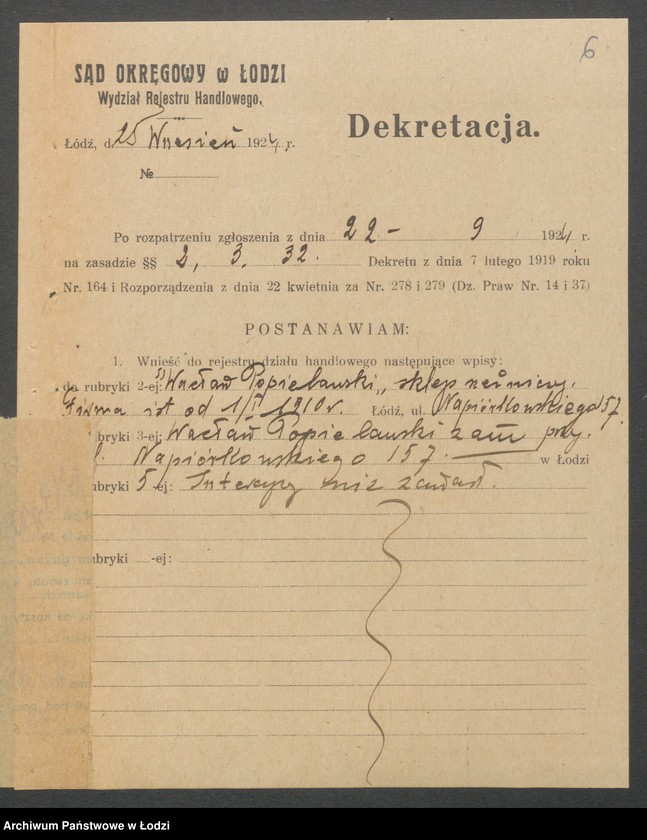 6
SĄD OKRĘGOWY w ŁODZI
Wydział Rejestru Handlowego.
Łódź, d. 25 Wrzesień 1924 r.
Dekretacja.
№
Po rozpatrzeniu zgłoszenia z dnia 22 - 9 1924 r.
na zasadzie §§ 2, 3, 32. Dekretu z dnia 7 lutego 1919 roku
Nr. 164 i Rozporządzenia z dnia 22 kwietnia za Nr. 278 i 279 (Dz. Praw Nr. 14 i 37)
POSTANAWIAM:
1. Wnieść do rejestru działu handlowego następujące wpisy:
do rubryki 2-ej: Wacław Popielawski,, sklep rzeźniczy.
Firma ist od 1/I 1910 r. Łódź, ul. Napiórkowskiego 157.
bryki 3-ej: Wacław Popielawski zam przy.
Napiórkowskiego 157. w Łodzi
ubryki 5-ej: Intercyzy nie zawarł.
ubryki -ej:
Archiwum Państwowe w Łodzi